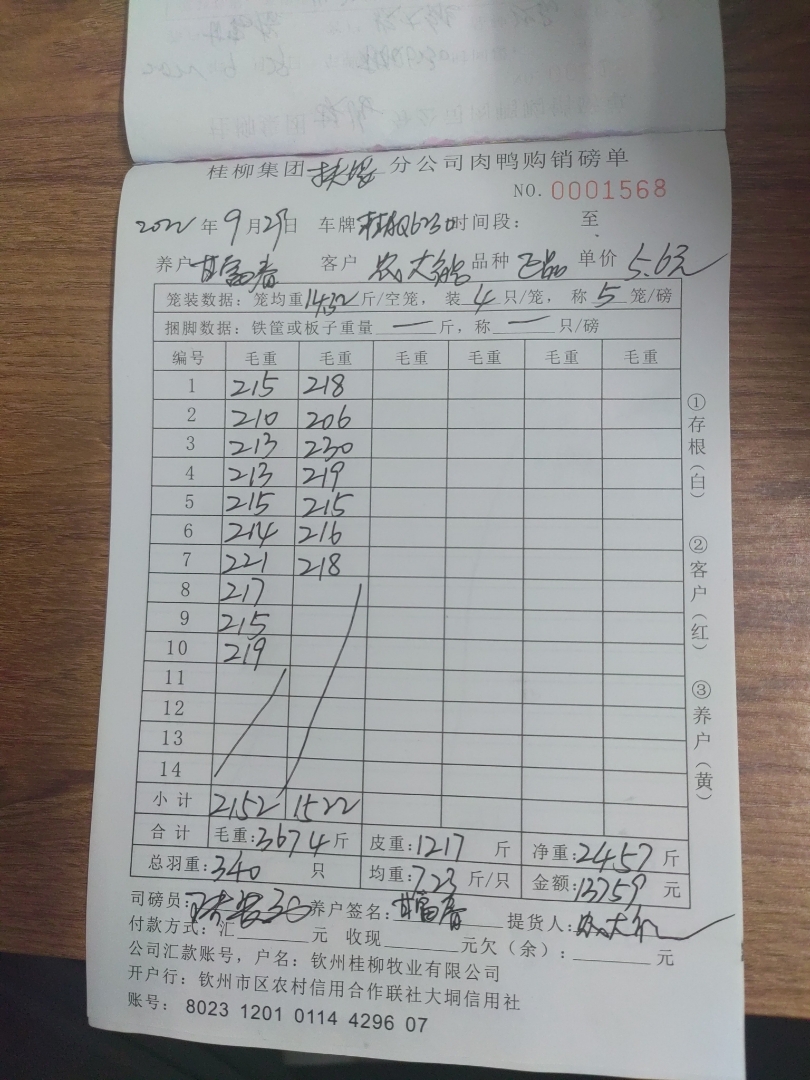 桂柳集团 分公司肉鸭购销磅单
NO. 0001568
2022 年 9 月 29 日 车牌 时间段： 至
养户 甘富春 客户 农大 品种 正品 单价 5.6元
笼装数据：笼均重 14.32 斤/空笼，装 4 只/笼，称 5 笼/磅
捆脚数据：铁筐或板子重量 — 斤，称 — 只/磅
编号 毛重 毛重 毛重 毛重 毛重 毛重
1 215 218
2 210 206
3 213 230
4 213 219
5 215 215
6 214 216
7 221 218
8 217
9 215
10 219
11
12
13
14
小计 2152 1522
合计 毛重：3674 斤 皮重：1217 斤 净重：2457 斤
总羽重：340 只 均重：7.23 斤/只 金额：13759 元
司磅员： 养户签名：甘富春 提货人：农大
付款方式：汇 元 收现 元欠（余）： 元
公司汇款账号，户名：钦州桂柳牧业有限公司
开户行：钦州市区农村信用合作联社大垌信用社
账号： 8023 1201 0114 4296 07
①存根（白）
②客户（红）
③养户（黄）